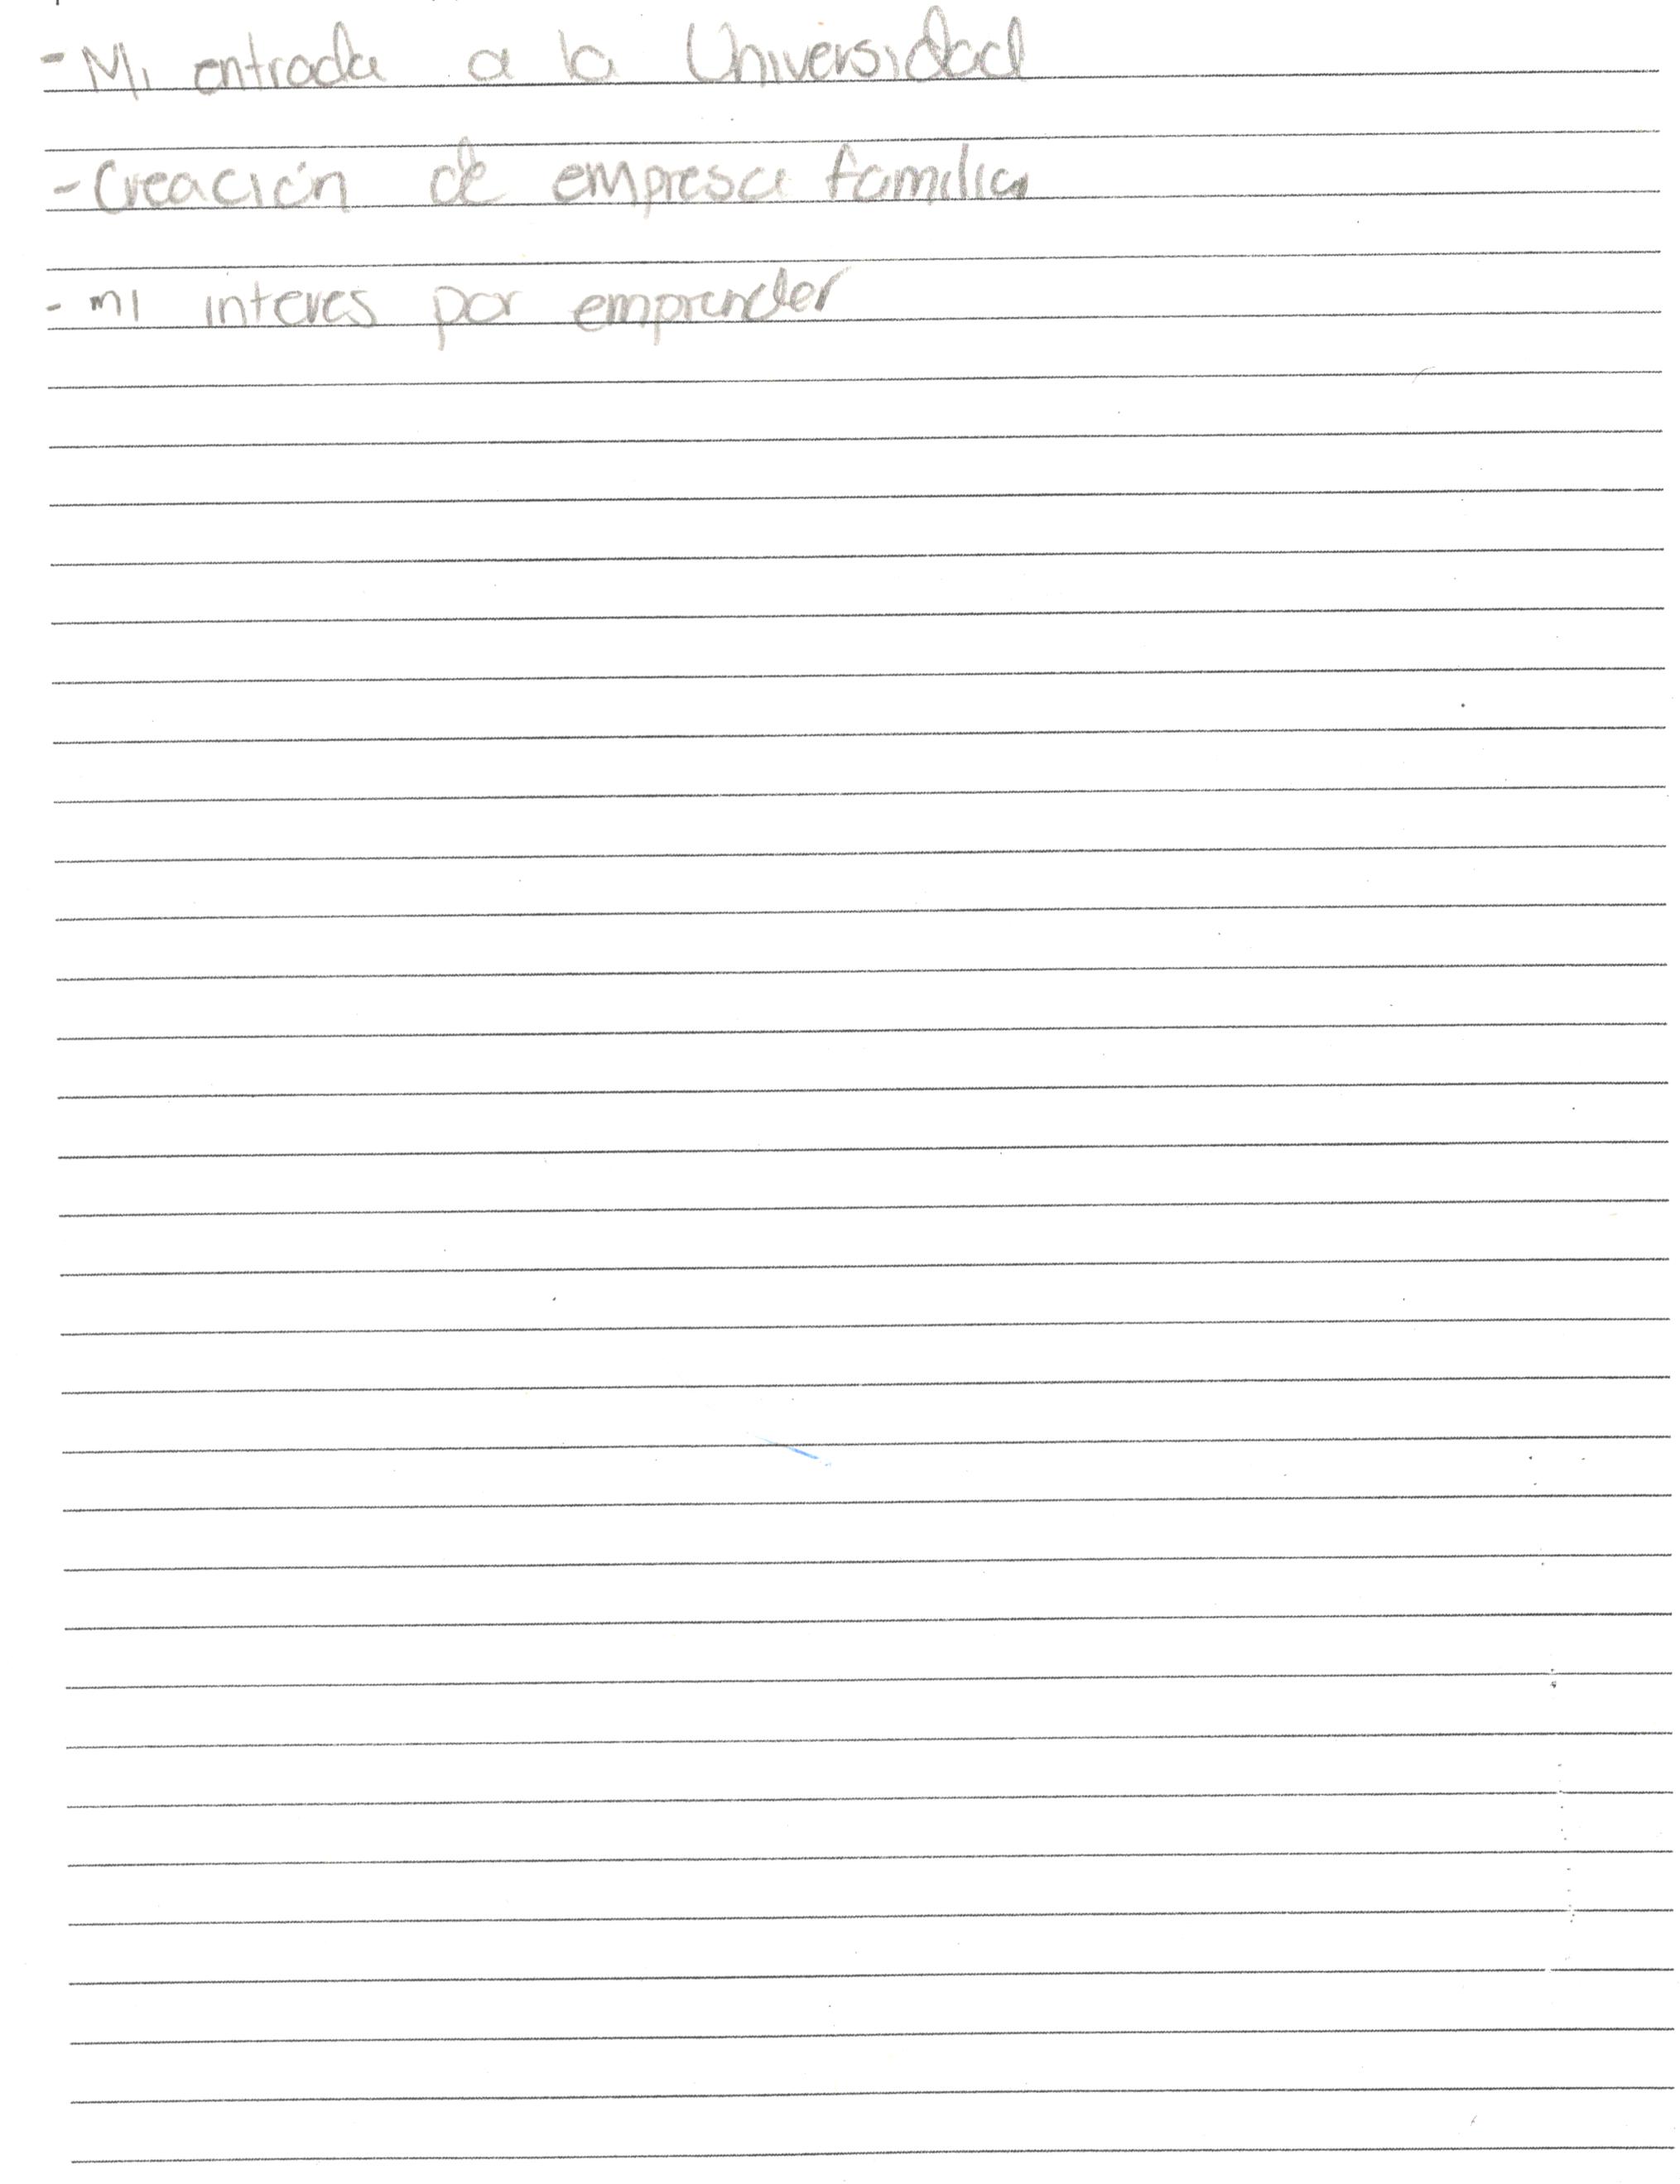 - Mi entrada a la Universidad
- Creación de empresa familia
- mi interes por emprender